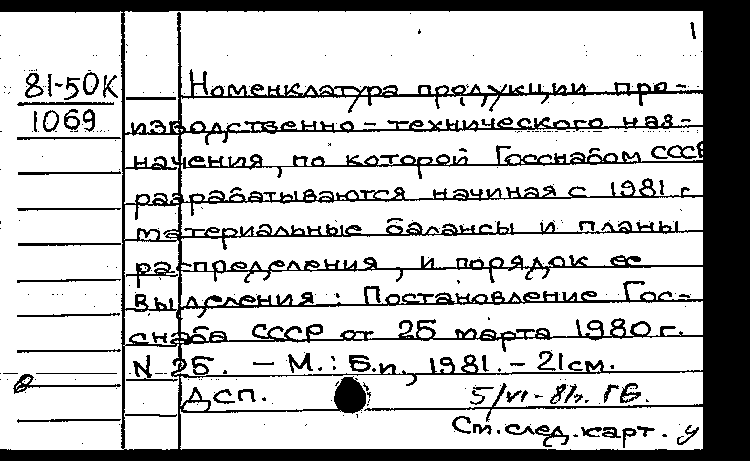 1
81-50К
1069
Номенклатура продукции про-
изводственно-технического наз-
начения, по которой Госснабом СССР
разрабатываются начиная с 1981 г.
материальные балансы и планы
распределения, и порядок ее
выделения: Постановление Гос-
снаба СССР от 25 марта 1980 г.
N 25. - М.: Б.и., 1981. - 21 см.
Дсп.
5/VI-81г. ГБ.
См. след. карт.